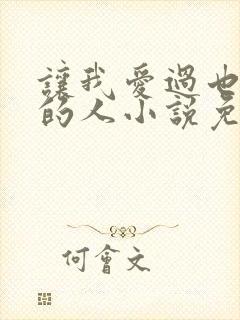 讓我愛過也
的人小說免
何會文